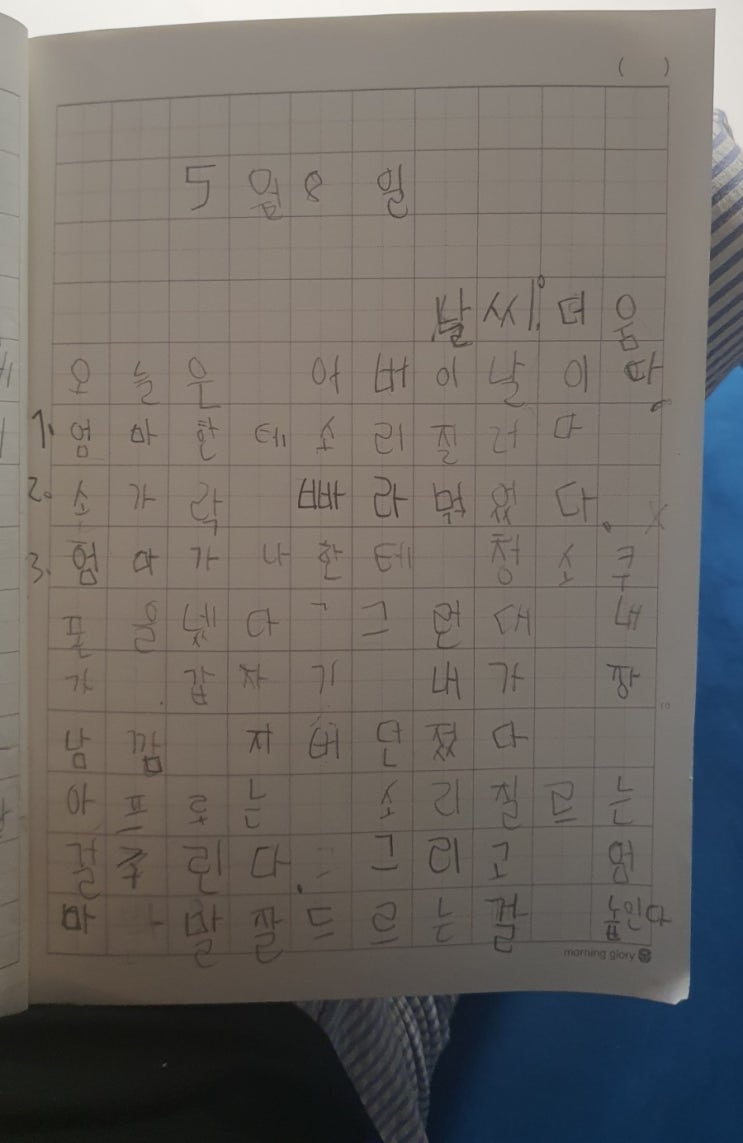 ( )
5월8 일
날씨: 더움
오늘은 어버이날이다.
1. 엄마한테소리질러다
2. 소가락 빠라먹었다. x
3. 엄마가나한테 청소쿠
폰을냈다 그런대 내
가 갑자기 내가 장
남깜 지버던젔다
아프로는 소리질르는
걸주린다. 그리고 엄
마 말잘드르는걸 높인다
10
morning glory